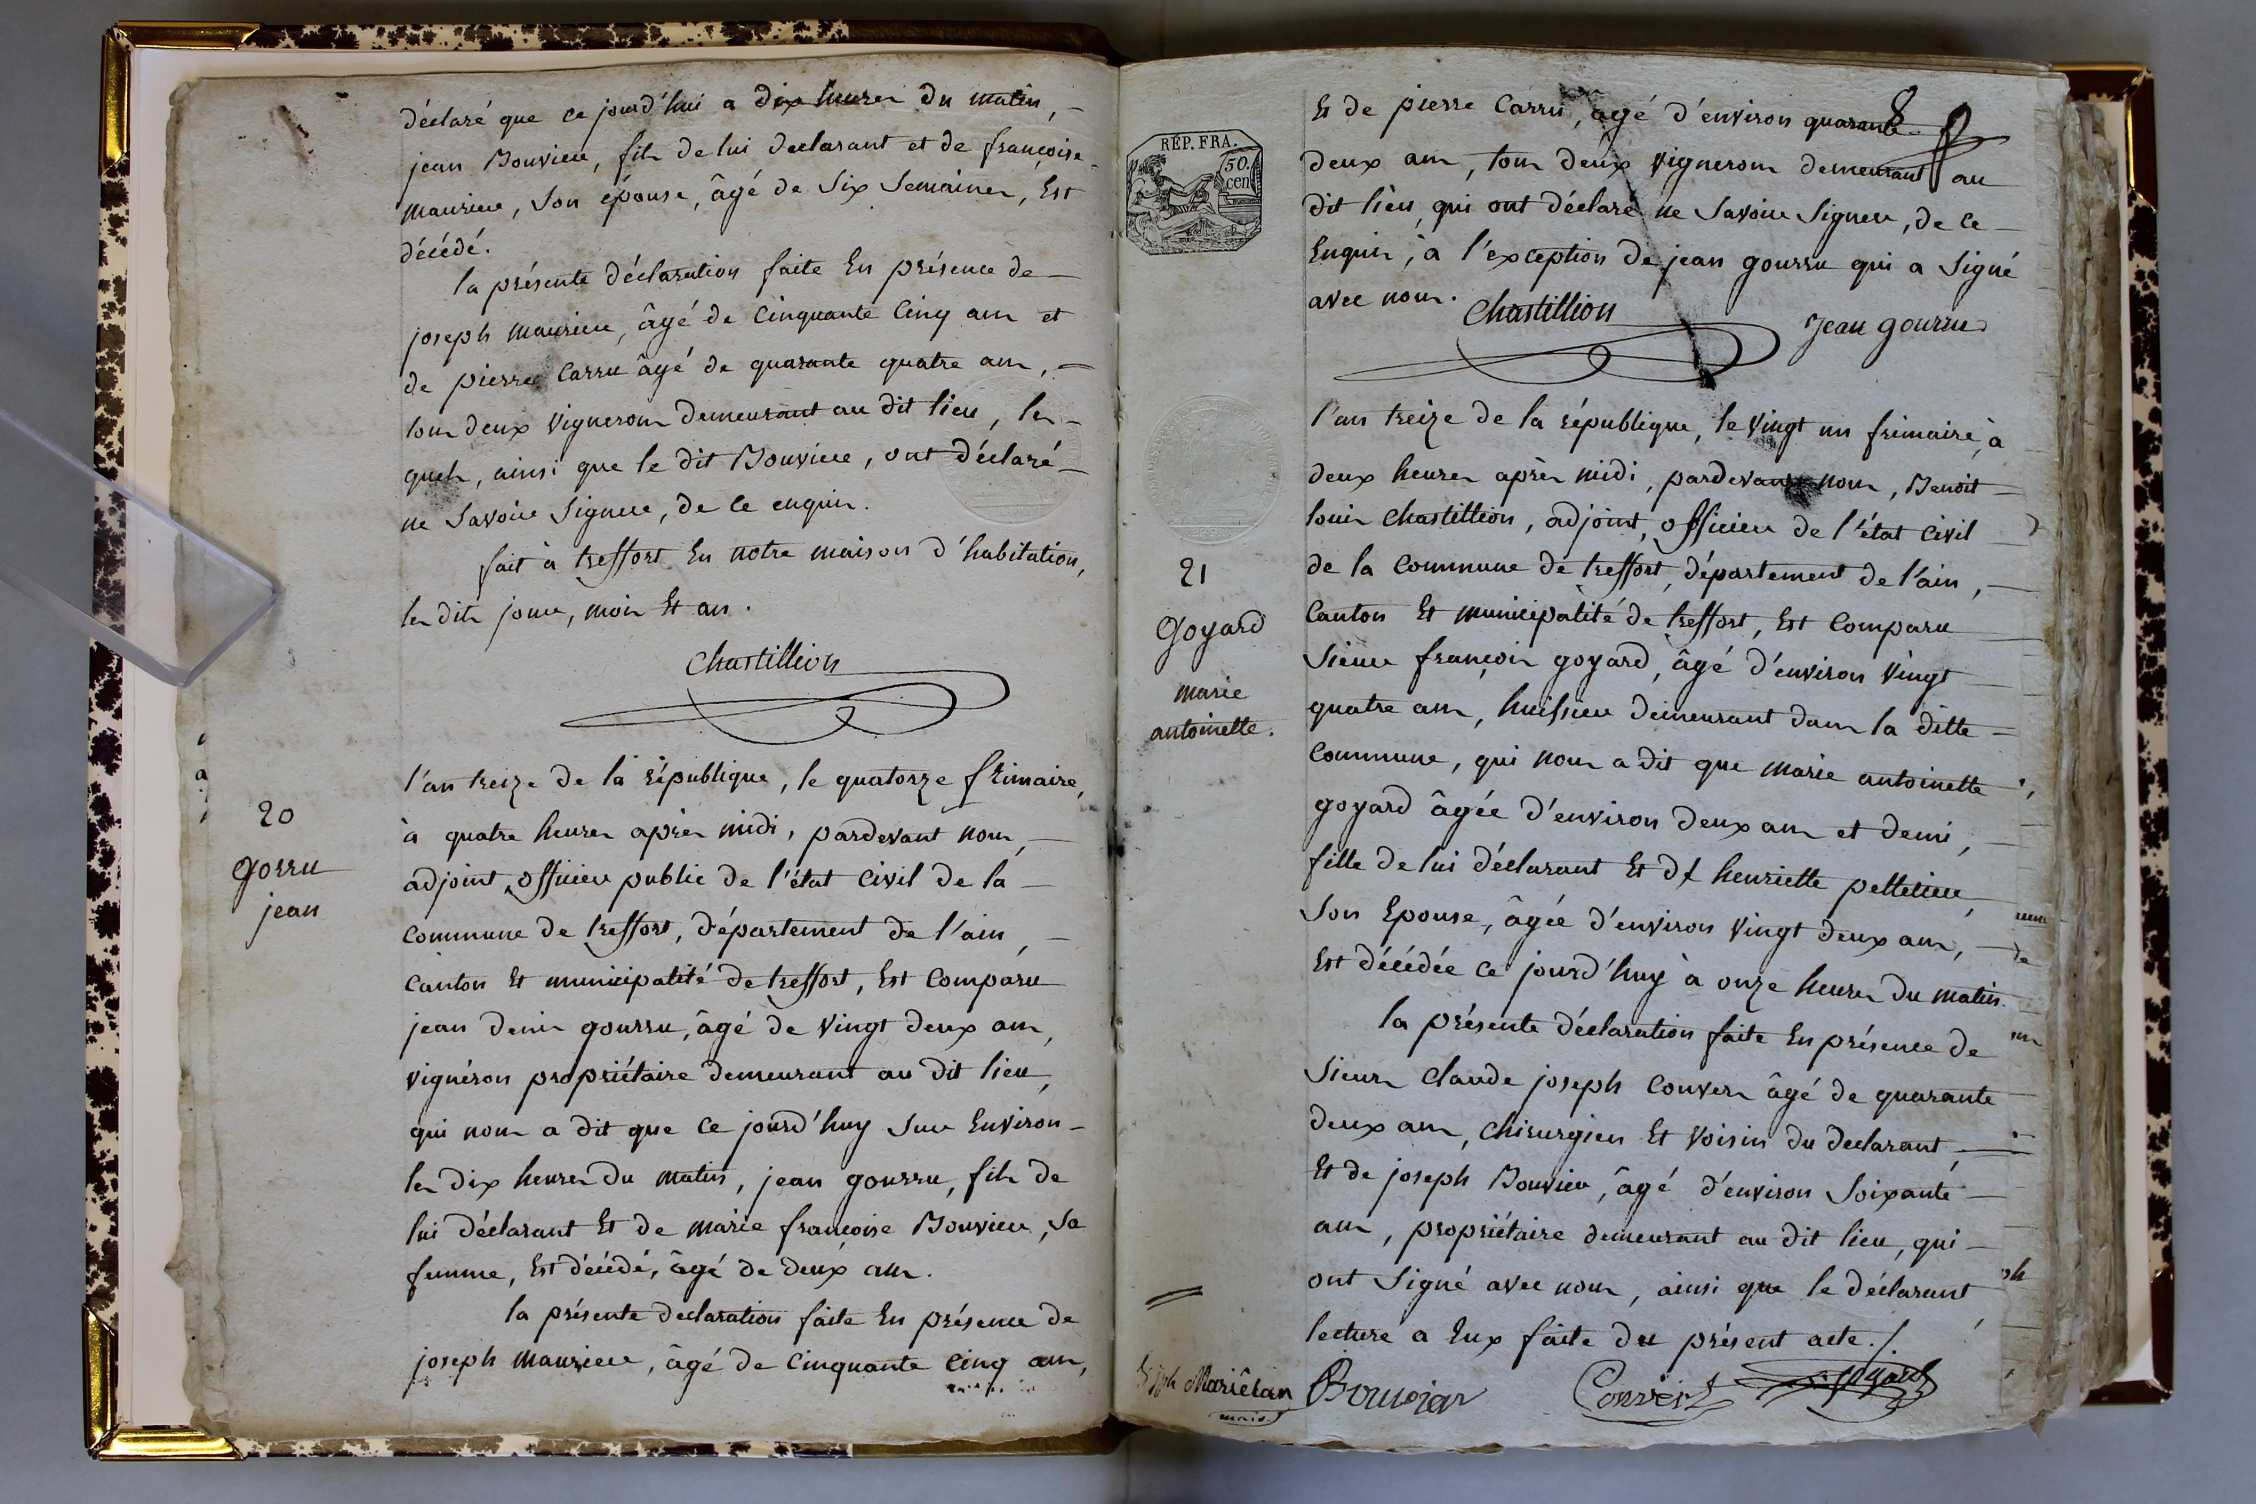 déclaré que ce jourd'hui a dix heures du matin,
jean Bouvier, fils de lui declarant et de françoise
maurier, son épouse, âgé de six semaines, Est
décédé.
la présente déclaration faite En présence de
joseph maurier, âgé de cinquante cinq ans et
de pierre carru âgé de quarante quatre ans,
tous deux vignerons demeurant au dit lieu, les
quels, ainsi que le dit Bouvier, ont déclaré
ne savoir signer, de ce enquis.
fait à treffort En notre maison d'habitation,
les dits jour, mois Et an.
Chastillion
20
gorru
jean
l'an treize de la république, le quatorze frimaire,
à quatre heures après midi, pardevant nous,
adjoint, officier public de l'état civil de la
commune de treffort, département de l'ain,
canton Et municipalité de treffort, Est comparu
jean denis gourru, âgé de vingt deux ans,
vignéron propriétaire demeurant au dit lieu,
qui nous a dit que ce jourd'huy sur Environ
les dix heures du matin, jean gourru, fils de
lui déclarant Et de marie françoise Bouvier, sa
femme, Est décédé, âgé de deux ans.
la présente declaration faite En présence de
joseph maurier, âgé de cinquante cinq ans,
8
Et de pierre Carru, âgé d'environ quarante
deux ans, tous deux vignerons demeurant au
dit lieu, qui ont déclaré ne savoir signer, de ce
Enquis, à l'exception de jean gourru qui a signé
avec nous.
Chastillion
Jean gourru
RÉP. FRA.
50.
cen
21
Goyard
marie
antoinette.
l'an treize de la république, le vingt un frimaire, à
deux heures après midi, pardevant nous, Benoit
louis chastillion, adjoint, officier de l'état civil
de la commune de treffort, département de l'ain,
Canton Et municipalité de treffort, Est comparu
sieur françois goyard, âgé d'environ vingt
quatre ans, huissier demeurant dans la ditte
commune, qui nous a dit que marie antoinette
goyard âgée d'environ deux ans et demi,
fille de lui déclarant Et de henriette pelletier,
son Epouse, âgée d'environ vingt deux ans,
Est décédée ce jourd'huy à onze heures du matin.
la présente déclaration faite En présence de
sieurs claude joseph convers âgé de quarante
deux ans, chirurgien Et voisin du declarant,
Et de joseph Bouvier, âgé d'environ soixante
ans, propriétaire demeurant au dit lieu, qui
ont signé avec nous, ainsi que le déclarant
lecture a Eux faite du présent acte./.
Mariêlan
maire
Bouvier
Convers
goyard